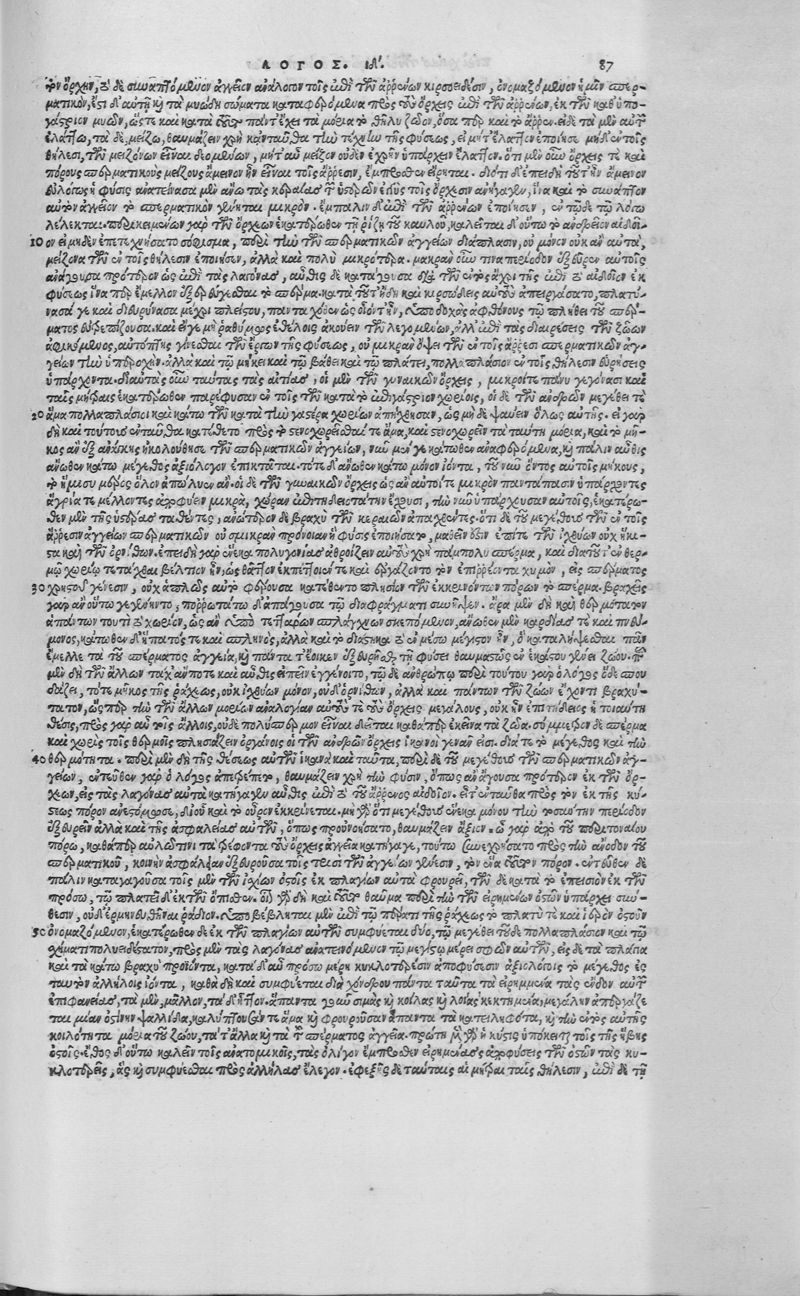 ΛΟΓΟΣ. ΙΔ. 87
τὸν ὄρχιν, τὸ δὲ συναπτόμενον ἀγγεῖον ἀνάλογον τοῖς ἐπὶ τῶν ἀρρένων κιρσοειδέσιν, ὀνομαζόμενον ἡμῖν σπερ-
ματικόν, ἔστι δ' αὐτῇ καὶ τὰ μυώδη σώματα καταφερόμενα πρὸς τοὺς ὄρχεις ἐπὶ τῶν ἀρρένων, ἐκ τῶν καθ' ὑπο-
γάστριον μυῶν, ὥστε καὶ κατὰ τοῦτο πάντ' ἔχει τὰ μόρια τὸ θῆλυ ζῶον, ὅσα περ καὶ τὸ ἄρρεν. εἰ δὲ τὰ μὲν αὐτοῦ
ἐλάττω, τὰ δὲ μείζω, θαυμάζειν χρὴ κἀνταῦθα τὴν τέχνην τῆς φύσεως, εἰ μήτ' ἔλαττον ἐποίησε μηδὲν τοῖς
θήλεσι, τῶν μειζόνων εἶναι δεομένων, μήτ' αὖ μεῖζον οὐδὲν ἐχρῆν ὑπάρχειν ἔλαττον. ὅτι μὲν οὖν ὄρχεις τε καὶ
πόρους σπερματικοὺς μείζους ἄμεινον ἦν εἶναι τοῖς ἄρρεσιν, ἔμπροσθεν εἴρηται. διότι δ' ἐπειδὴ τοῦτ' ἦν ἄμεινον
εὐλόγως ἡ φύσις ἀνατείνασα μὲν ἄνω τὰς κεραίας τῶν ὑστερῶν ἐγγὺς τοῖς ὄρχεσιν ἀνήγαγεν, ἵνα καὶ τὸ συνάπτον
αὐτὸν ἀγγεῖον τὸ σπερματικὸν γένηται μικρόν. ἔμπαλιν δ' ἐπὶ τῶν ἀρρένων ἐποίησεν, ἐν τῷδε τῷ λόγῳ
λέλεκται. περικειμένων γὰρ τῶν ὄρχεων ἑκατέρωθεν τῇ ῥίζῃ τοῦ καυλοῦ, καλεῖται δ' οὕτω τὸ ἀνδρεῖον αἰδοῖ-
10 ον εἰ μηδὲν ἐπετεχνήσατο σόφισμα, περὶ τὴν τῶν σπερματικῶν ἀγγείων διάπλασιν, οὐ μόνον οὐκ ἂν αὐτὰ,
μείζονα τῶν ἐν τοῖς θήλεσιν ἐποίησεν, ἀλλὰ καὶ πολὺ μικρότερα. μακρὰν οὖν τινα περίοδον ἐξεῦρεν αὐτοῖς
ἀνάγουσα πρότερον ὡς ἐπὶ τὰς λαγόνας, αὖθις δὲ κατάγουσα διὰ τῶν ἐντὸς ἄχρι τῆς ἐπὶ τὸ αἰδοῖον ἐκ
φύσεως ἵνα περ ἔμελλον ἐξερεύγεσθαι τὸ σπέρμα. κατὰ τοῦτ' ἤδη καὶ κιρσώδεις αὐτοὺς ἀπειργάσατο, πλατύ-
νασά γε καὶ διευρύνασα μέχρι πλείστου, πάντα χόθεν ὡς οἷόν τ' ἦν, ὑποδοχὰς ἀφθόνους τῷ πλήθει τοῦ σπέρ-
ματος εὐτρεπίζουσα. καὶ εἴγε μὴ ῥᾳθύμως ἐθέλοις ἀκούειν τῶν λεγομένων, ἀλλ' ἐπὶ τὰς διαιρέσεις τῶν ζώων
ἀφικόμενος, αὐτόπτης γίνεσθαι τῶν ἔργων τῆς φύσεως, οὐ μικρὰν ὄψει τῶν ἐν τοῖς ἄρρεσι σπερματικῶν ἀγ-
γείων τὴν ὑπεροχήν. ἀλλὰ καὶ τῷ μήκει καὶ τῷ βάθει καὶ τῷ πλάτει, πολλαπλάσιον ἐν τοῖς θήλεσιν εὑρήσεις
ὑπάρχοντα. διὰ ταύτας οὖν ταύτας τὰς αἰτίας, οἱ μὲν τῶν γυναικῶν ὄρχεις, μικροί τε πάνυ γεγόνασι καὶ
ταῖς μήτραις ἑκατέρωθεν παρέφυσαν ἐν τοῖς κατὰ τὸ ἐπιγάστριον χωρίοις, οἱ δὲ τῶν ἀνδρῶν μεγέθει τε
20 ἅμα πολλαπλάσιοι καὶ κάτω τῶν κατὰ τὴν γαστέρα χωρίων ἀπήχθησαν, ὡς μηδὲ ψαύειν ὅλως αὐτῆς. εἰ γὰρ
δὴ καὶ τούτους ἐνταῦθα κατέθετο πρὸς τὸ στενοχωρεῖσθαί τε ἅμα, καὶ στενοχωρεῖν τὰ ταύτῃ μόρια, καὶ τὸ μῆ-
κος ἂν ἐξ ἀνάγκης ἠκολούθησε τῶν σπερματικῶν ἀγγείων, νῦν μέν γε κάτωθεν ἀναφερόμενα, καὶ πάλιν αὖθις
ἄνωθεν κάτω μέγεθος ἀξιόλογον ἐπικτᾶται. τότε δ' ἄνωθεν κάτω μόνον ἰόντα, τοῦ νῦν ὄντος αὐτοῖς μήκους,
τὸ ἥμισυ μέρος ὅλον ἀπώλλυον ἄν. οἱ δὲ τῶν γυναικῶν ὄρχεις ὡς ἂν αὐτοί τε μικροὶ παντάπασιν ὑπάρχοντες
ἀγγεῖά τε μέλλοντες ἀποφύειν μικρά, χώραν ἐπιτηδειοτάτην ἔχουσι, τὴν νῦν ὑπάρχουσαν αὐτοῖς, ἑκατέρω-
θεν μὲν τῆς ὑστέρας ταθέντες, ἀνώτερον δὲ βραχὺ τῶν κεραιῶν ἀπάγοντες. ὅτι δὲ τοῦ μεγέθους τῶν ἐν τοῖς
ἄρρεσιν ἀγγείων σπερματικῶν οὐ σμικρὰν πρόνοιαν ἡ φύσις ἐποιήσατο, μαθεῖν ἔνεστί ἐπί τε τῶν ἰχθύων οὐχ ἥκι-
στα καὶ τῶν ὀρνίθων. ἐπειδὴ γὰρ ἕνεκα πολυγονίας ἀθροίζειν αὐτοὺς χρὴ πάμπολυ σπέρμα, καὶ διὰ τοῦτ' ἐν θερ-
μῷ χωρίῳ τετάχθαι βέλτιον ἦν, ὡς θᾶττον ἐκπέττοιέν τε καὶ ἐργάζοιντο τὸν ἐπιρρέοντα χυμόν, εἰς σπέρματος
30 χρηστοῦ γένεσιν, οὐχ ἁπλῶς αὐτὸ φέρουσα κατέθετο πλησίον τῶν ἐκκρινόντων πόρων τὸ σπέρμα. βραχεῖς
γὰρ ἂν οὕτω γεγόνοντο, πορρωτάτω δ' ἀπάγουσα τῷ διαφράγματι συνῆψεν. ἆρα μὲν δὴ καὶ θερμότατον
ἁπάντων τουτὶ τὸ χωρίον, ὡς ἂν ὑπὸ τεττάρων σπλάγχνων σκεπόμενον, ἄνωθεν μὲν καρδίας τε καὶ πνεύ-
μονος, κάτωθεν δ' ἥπατός τε καὶ σπληνός, ἀλλὰ καὶ τὸ διάστημα τὸ ἐν μέσῳ μέγιστον ἦν, ὃ καταλήψεσθαι πᾶν
ἔμελλε τὰ τοῦ σπέρματος ἀγγεῖα, καὶ πάντα τ' ἔοικεν ἐξευρῆσθαι τῇ φύσει θαυμαστῶς ἐν ἑκάστου γένει ζώου. περὶ
μὲν δὴ τῶν ἄλλων τάχ' ἄν ποτε καὶ αὖθις εἰπεῖν ἐγγένοιτο, τῷ δ' ἀνθρώπῳ τούτου γὰρ ὁ λόγος ὅδε σπου-
δάζει, τότε μῆκος τῆς ῥάχεως, οὐκ ἰχθύων μόνον, οὐδ' ὀρνίθων, ἀλλὰ καὶ πάντων τῶν ζώων ἔχοντι βραχύ-
τατον, ὥσπερ τὴν τῶν ἄλλων μορίων ἀναλογίαν αὐτούς τε τοὺς ὄρχεις μεγάλους, οὐκ ἦν ἐπιτήδειος ἡ τοιαύτη
θέσις, πρὸς γὰρ αὖ τοῖς ἄλλοις, οὐδὲ πολύσπερμον εἶναι δεῖται καθάπερ ἐκεῖνα τὰ ζῶα. σύμμετρον δὲ σπέρμα
καὶ χωρὶς τοῖς θερμοῖς πλησιάζειν ὀργάνοις οἱ τῶν ἀνδρῶν ὄρχεις ἱκανοὶ γεννᾶν εἰσι. διά τε τὸ μέγεθος καὶ τὴν
40 θερμότητα. περὶ μὲν δὴ τῆς θέσεως αὐτῶν ἱκανὰ καὶ ταῦτα, περὶ δὲ τοῦ μεγέθους τῶν σπερματικῶν ἀγ-
γείων, ἐντεῦθεν γὰρ ὁ λόγος ἀπετράπετο, θαυμάζειν χρὴ τὴν φύσιν, ὅπως ἀνάγουσα πρότερον ἐκ τῶν ὄρ-
χεων, εἰς τὰς λαγόνας αὐτὰ κατήγαγεν αὖθις ἐπὶ τὸ τοῦ ἄρρενος αἰδοῖον. εἶτ' ἐνταῦθα πρὸς τὸν ἐκ τῆς κύ-
στεως πόρον ἀνεστόμωσε, δι' οὗ καὶ τὸ οὖρον ἐκκρίνεται. μὴ γὰρ ὅτι μεγέθους ἕνεκα μόνου τὴν τοιαύτην περίοδον
ἐξευρεῖν ἀλλὰ καὶ τῆς ἀσφαλείας αὐτῶν, ὅπως προὐνοήσατο, θαυμάζειν ἄξιον. ᾧ γὰρ ἀπὸ τοῦ περιτοναίου
πόρῳ, καθάπερ αὐλῶνί τινι τὰ τρέφοντα τοὺς ὄρχεις ἀγγεῖα κατήγαγε, τούτῳ συνεχρήσατο πρὸς τὴν ἄνοδον τοῦ
σπερματικοῦ, κοινὴν ἀσφάλειαν ἐξευροῦσα τοῖς τρισὶ τῶν ἀγγείων γένεσιν, τὸν ἕνα τοῦτον πόρον. ἐντεῦθεν δὲ
πάλιν καταγαγοῦσα τοῖς μὲν τῶν ἰσχίων ὀστοῖς ἐκ πλαγίων αὐτὰ φρουρεῖ, τῶν δὲ κατὰ τὸ ἐπείσιον ἐκ τῶν
πρόσω, τῷ πλατεῖ δ' ἐκ τῶν ὄπισθεν. ὃ γὰρ δὴ καὶ τοῦτο θαῦμα περὶ τὴν τῶν εἰρημένων ὀστῶν ὑπάρχει σύν-
θεσιν, οὐδ' ἑρμηνευθῆναι ῥᾴδιον. ὑποβέβληται μὲν ἐπὶ τῷ πέρατι τῆς ῥάχεως τὸ πλατύ τε καὶ ἱερὸν ὀστοῦν
50 ὀνομαζόμενον, ἑκατέρωθεν δὲ ἐκ τῶν πλαγίων αὐτῶν συμφύεται δύο, τῷ μεγέθει τοῦδε πολλαπλάσιον καὶ τῷ
σχήματι πολυειδέστατον, πρὸς μὲν τὰς λαγόνας ἀνατεινόμενον τῷ μεγίστῳ μέρει σφῶν αὐτῶν, εἰς δὲ τὰ πλάγια
καὶ τὰ κάτω βραχὺ προϊόντα, κατὰ δ' αὖ πρόσω μέρη κυκλοτερέσιν ἀποφύσεσιν ἀξιολόγοις τὸ μέγεθος ἐς
ταὐτὸν ἀλλήλοις ἰόντα, καθὰ δὴ καὶ συμφύεται διὰ χόνδρου πάντα ταῦτα τὰ εἰρημένα τὰς ἔνδον αὐτῶν
ἐπιφανείας, τὰ μὲν, μᾶλλον, τὰ δ' ἧττον. ἅπαντα γοῦν σιμὰς καὶ κοίλας καὶ λείας κεκτημένα, μεγάλην ἀπεργάζε
ται μίαν ὀστίνην ψαλλίδα, καλύπτουσάν τε ἅμα καὶ φρουροῦσαν ἅπαντα τὰ κατειληφότα, καὶ τὴν ἐντὸς αὐτῆς
κοιλότητα μόρια τοῦ ζώου, τά τ' ἄλλα καὶ τὰ τοῦ σπέρματος ἀγγεῖα. πρώτη μὲν γὰρ ἡ κύστις ὑπόκειται τοῖς τῆς ἥβης
ὀστοῖς. ἔθος δ' οὕτω καλεῖν τοῖς ἀνατομικοῖς, τὰς ὀλίγον ἔμπροσθεν εἰρημένας ἀποφύσεις τῶν ὀστῶν τὰς κυ-
κλοτερεῖς, ἃς καὶ συμφύεσθαι πρὸς ἀλλήλας ἔλεγον. ἐφεξῆς δὲ ταύταις αἱ μῆτραι ταῖς θήλεσιν, ἐπὶ δὲ τῶν